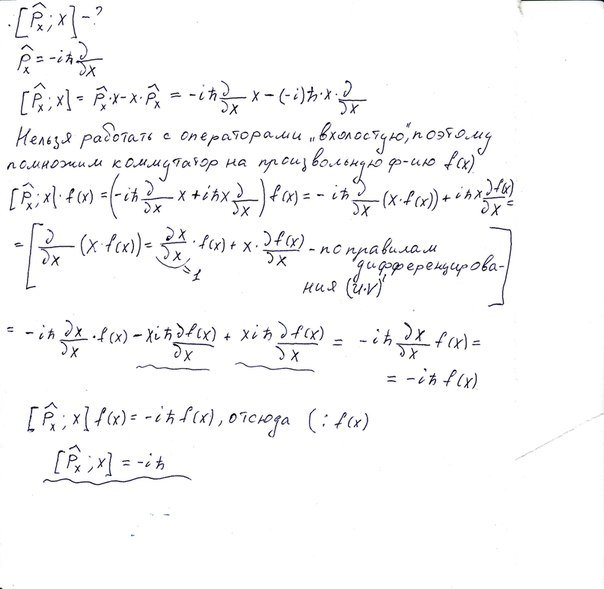 . [P̂ₓ ; x] - ?
P̂ₓ = -iħ ∂/∂x
[P̂ₓ ; x] = P̂ₓ·x - x·P̂ₓ = -iħ ∂/∂x x - (-i)ħ·x·∂/∂x
Нельзя работать с операторами „вхолостую", поэтому
помножим коммутатор на произвольную ф-ию f(x)
[P̂ₓ ; x]·f(x) = (-iħ ∂/∂x x + iħx ∂/∂x) f(x) = -iħ ∂/∂x (x·f(x)) + iħx ∂f(x)/∂x =
= [∂/∂x (x·f(x)) = ∂x/∂x · f(x) + x · ∂f(x)/∂x - по правилам
=1 дифференцирова-
ния (u·v)']
= -iħ ∂x/∂x · f(x) - xiħ ∂f(x)/∂x + xiħ ∂f(x)/∂x = -iħ ∂x/∂x f(x) =
= -iħ f(x)
[P̂ₓ ; x] f(x) = -iħ f(x), отсюда ( : f(x)
[P̂ₓ ; x] = -iħ